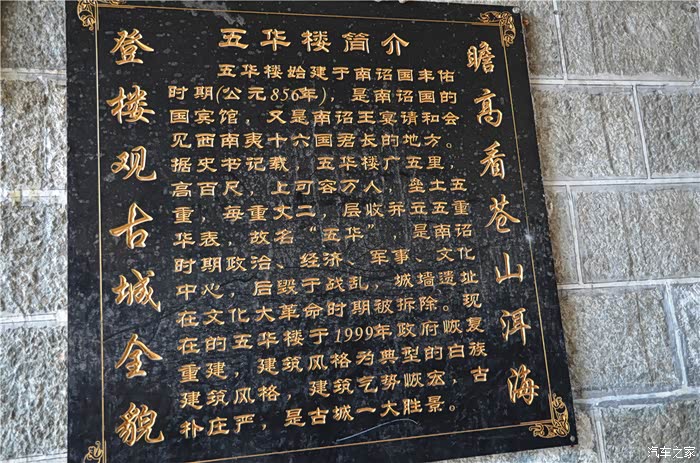 五华楼简介
登楼观古城全貌
五华楼始建于南诏国丰佑
时期(公元856年)，是南诏国的
国宾馆，又是南诏王宴请和会
见西南夷十六国君长的地方。
据史书记载，五华楼广五里，
高百尺，上可容万人，垒土五
重，每重丈二，层收并立五重
华表，故名“五华”，是南诏
时期政治、经济、军事、文化
中心，后毁于战乱，城墙遗址
在文化大革命时期被拆除。现
在的五华楼于1999年政府恢复
重建，建筑风格为典型的白族
建筑风格，建筑气势恢宏，古
朴庄严，是古城一大胜景。
瞻高看苍山洱海
汽车之家